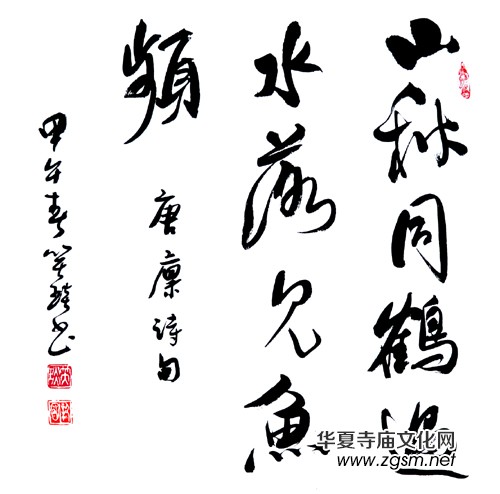 山秋同鶴過
水落见魚
頻
唐廩詩句
甲午春书
华夏寺庙文化网
www.zgsm.net